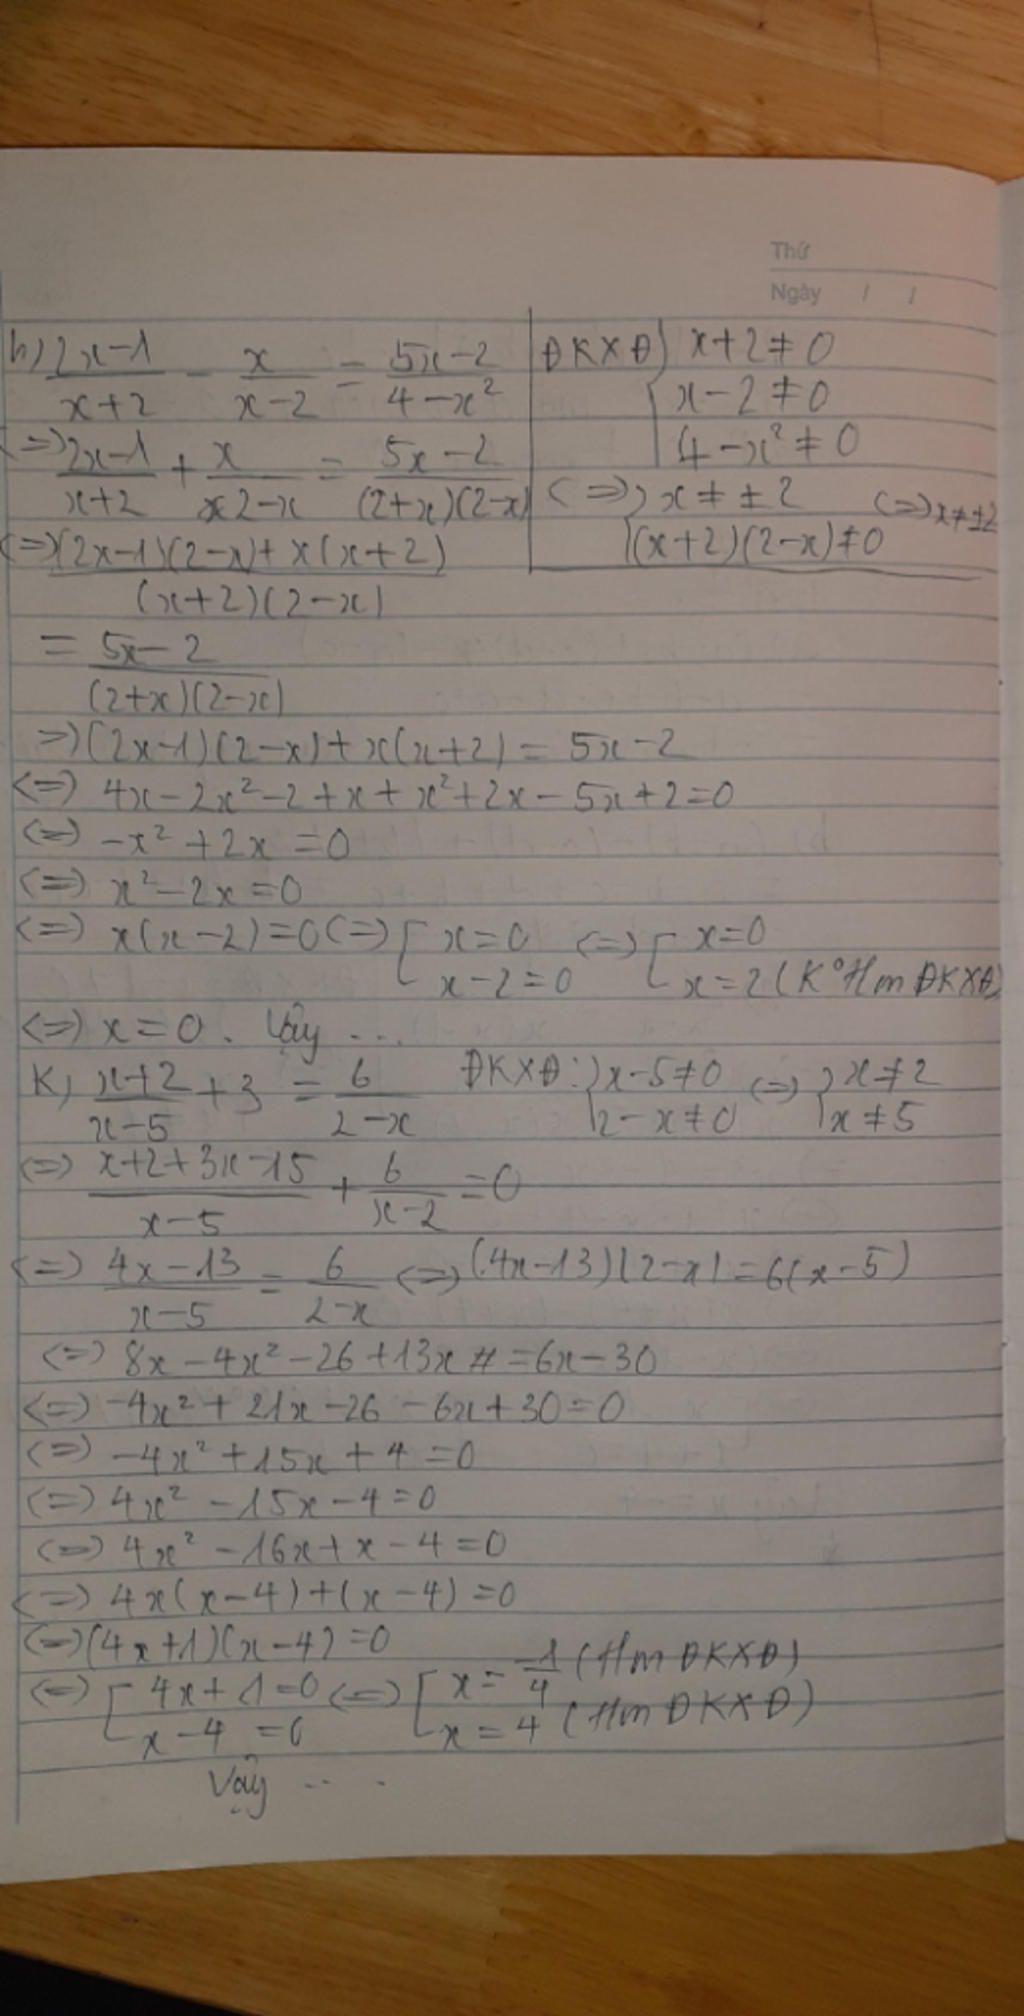 Thứ
Ngày / /
h) (2x-1)/(x+2) - x/(x-2) = (5x-2)/(4-x²)
ĐKXĐ { x+2≠0
x-2≠0
4-x²≠0
(=) (2x-1)/(x+2) + x/(2-x) = (5x-2)/((2+x)(2-x))
(=) { x≠±2
(x+2)(2-x)≠0 (=) x≠±2
(=) ((2x-1)(2-x)+x(x+2))/((x+2)(2-x))
= (5x-2)/((2+x)(2-x))
=) (2x-1)(2-x)+x(x+2) = 5x-2
(=) 4x-2x²-2+x+x²+2x-5x+2=0
(=) -x²+2x=0
(=) x²-2x=0
(=) x(x-2)=0 (=) [ x=0 (=) [ x=0
x-2=0 x=2 (K° t/m ĐKXĐ)
(=) x=0. Vậy ...
K) (x+2)/(x-5) + 3 = 6/(2-x) ĐKXĐ: { x-5≠0 (=) { x≠2
2-x≠0 x≠5
(=) (x+2+3x-15)/(x-5) + 6/(x-2) = 0
(=) (4x-13)/(x-5) = 6/(2-x) (=) (4x-13)(2-x)=6(x-5)
(=) 8x-4x²-26+13x =6x-30
(=) -4x²+21x-26-6x+30=0
(=) -4x²+15x+4=0
(=) 4x²-15x-4=0
(=) 4x²-16x+x-4=0
(=) 4x(x-4)+(x-4)=0
(=) (4x+1)(x-4)=0
(=) [ 4x+1=0 (=) [ x=-1/4 (t/m ĐKXĐ)
x-4=0 x=4 (t/m ĐKXĐ)
Vậy ...